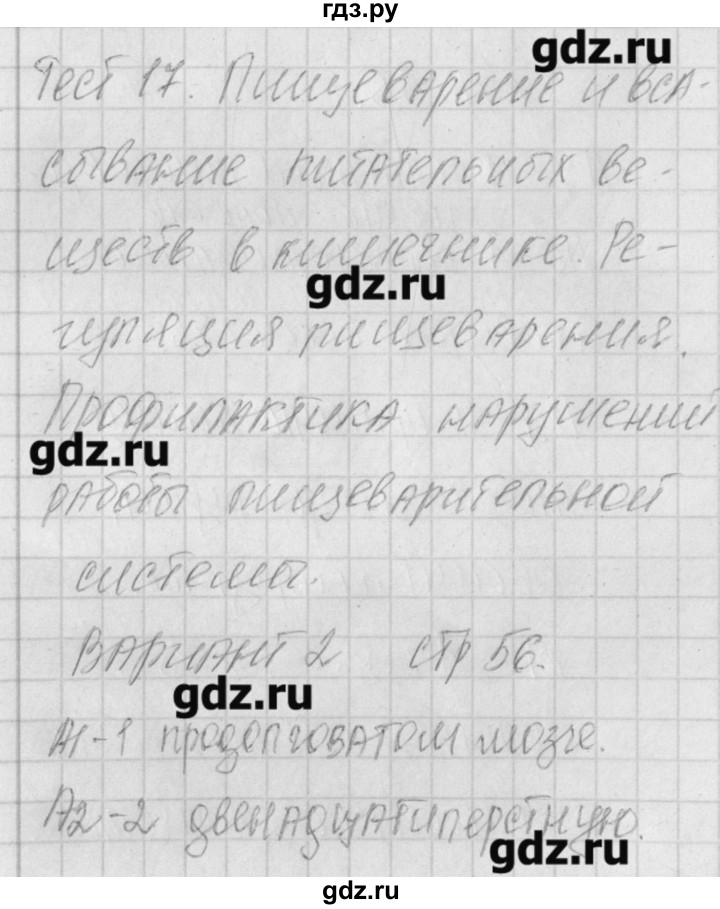 гдз.ру
gdz.ru
Тест 17. Пищеварение и вса-
сывание питательных ве-
ществ в кишечнике. Ре-
gdz.ru
гуляция пищеварения.
Профилактика нарушений
gdz.ru
работы пищеварительной
системы.
Вариант 2 стр 56.
gdz.ru
А1-1 продолговатом мозге.
А2-2 двенадцатиперстную.
gdz.ru
gdz.ru